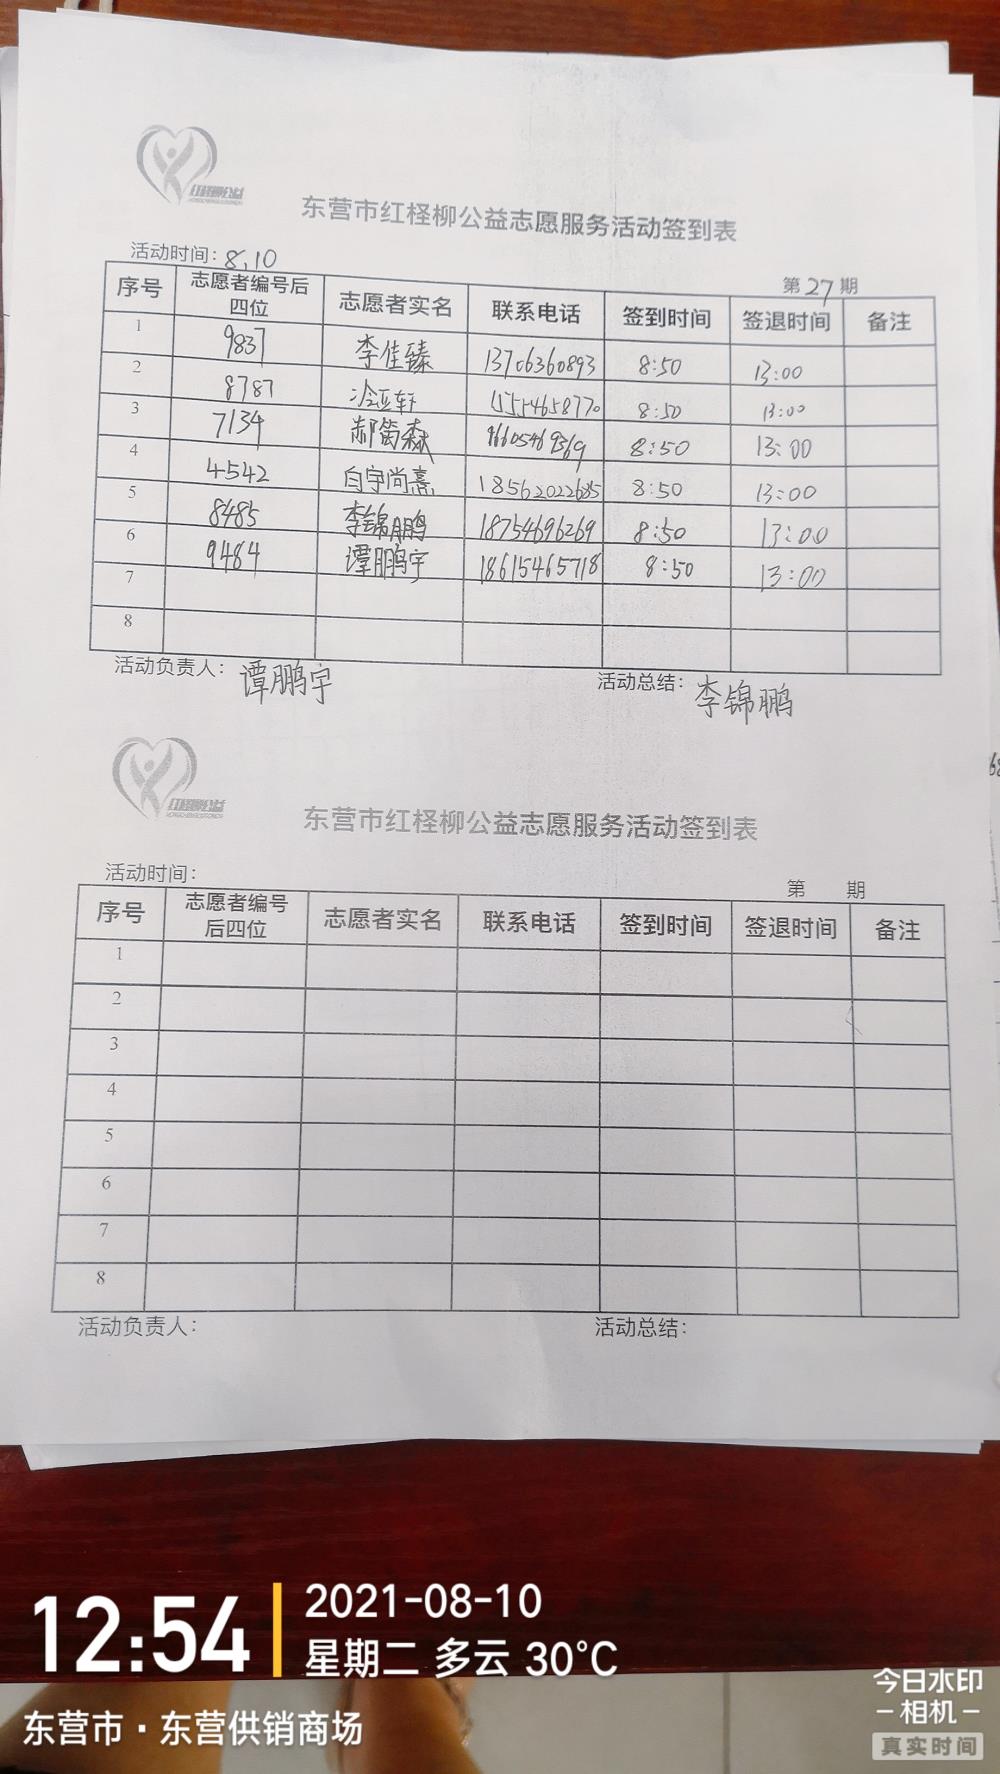 红柽柳公益
东营市红柽柳公益志愿服务活动签到表
活动时间: 8.10
第27期
序号 志愿者编号后四位 志愿者实名 联系电话 签到时间 签退时间 备注
1 9837 李佳臻 13706360893 8:50 13:00
2 8787 冷亚轩 15554658770 8:50 13:00
3 7134 郝 森 8:50 13:00
4 4542 白宇尚熹 18562022685 8:50 13:00
5 8485 李锦鹏 18754696269 8:50 13:00
6 9484 谭鹏宇 18615465718 8:50 13:00
7
8
活动负责人: 谭鹏宇 活动总结: 李锦鹏
红柽柳公益
东营市红柽柳公益志愿服务活动签到表
活动时间:
第 期
序号 志愿者编号后四位 志愿者实名 联系电话 签到时间 签退时间 备注
1
2
3
4
5
6
7
8
活动负责人: 活动总结:
12:54
2021-08-10
星期二 多云 30°C
东营市·东营供销商场
今日水印
-相机-
真实时间